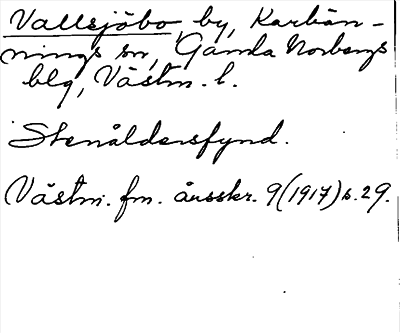 Vallsjöbo, by, Karbän-
nings sn, Gamla Norbergs
blg, Västm. l.
Stenåldersfynd.
Västm. fm. årsskr. 9 (1917) s. 29.